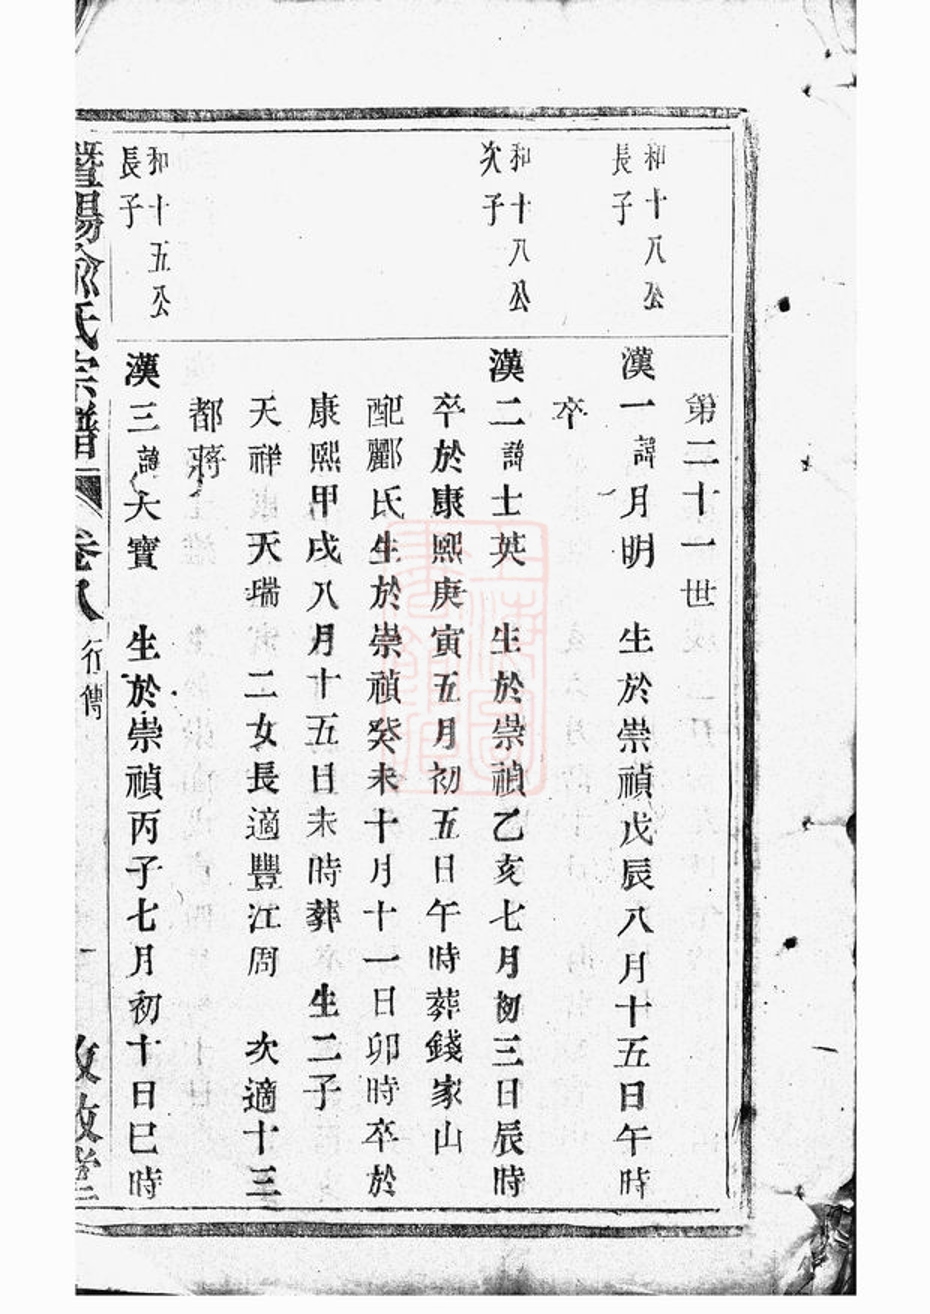 第二十一世
和十八公
長子
漢一諱月明 生於崇禎戊辰八月十五日午時
卒
和十八公
次子
漢二諱士英 生於崇禎乙亥七月初三日辰時
卒於康熙庚寅五月初五日午時葬錢家山
配酈氏生於崇禎癸未十月十一日卯時卒於
康熙甲戌八月十五日未時葬 生二子
天祥 天瑞 二女長適豐江周 次適十三
都蔣
和十五公
長子
漢三諱大寶 生於崇禎丙子七月初十日巳時
暨陽俞氏宗譜 卷八 行傳 一 敦敘堂